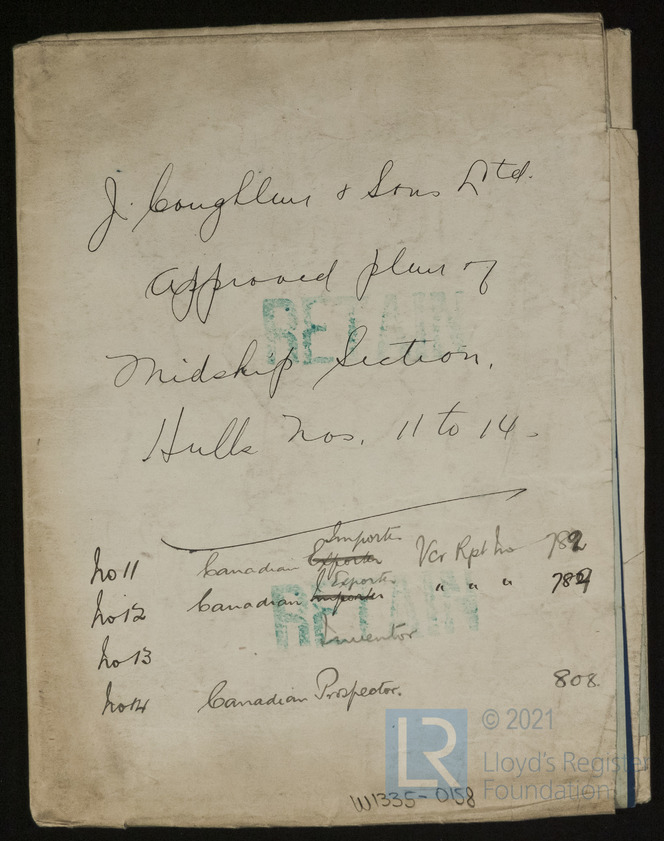 J. Coughlan & Sons Ltd.
Approved plan of
RETAIN
Midship Section.
Hulls Nos. 11 to 14.
Importer
No 11 Canadian Exporter Vcr Rpt No 782
Exporter
No 12 Canadian Importer " " " 784
RETAIN
Inventor
No 13
No 14 Canadian Prospector. 808
LR
© 2021
Lloyd's Register
Foundation
W1335-0158